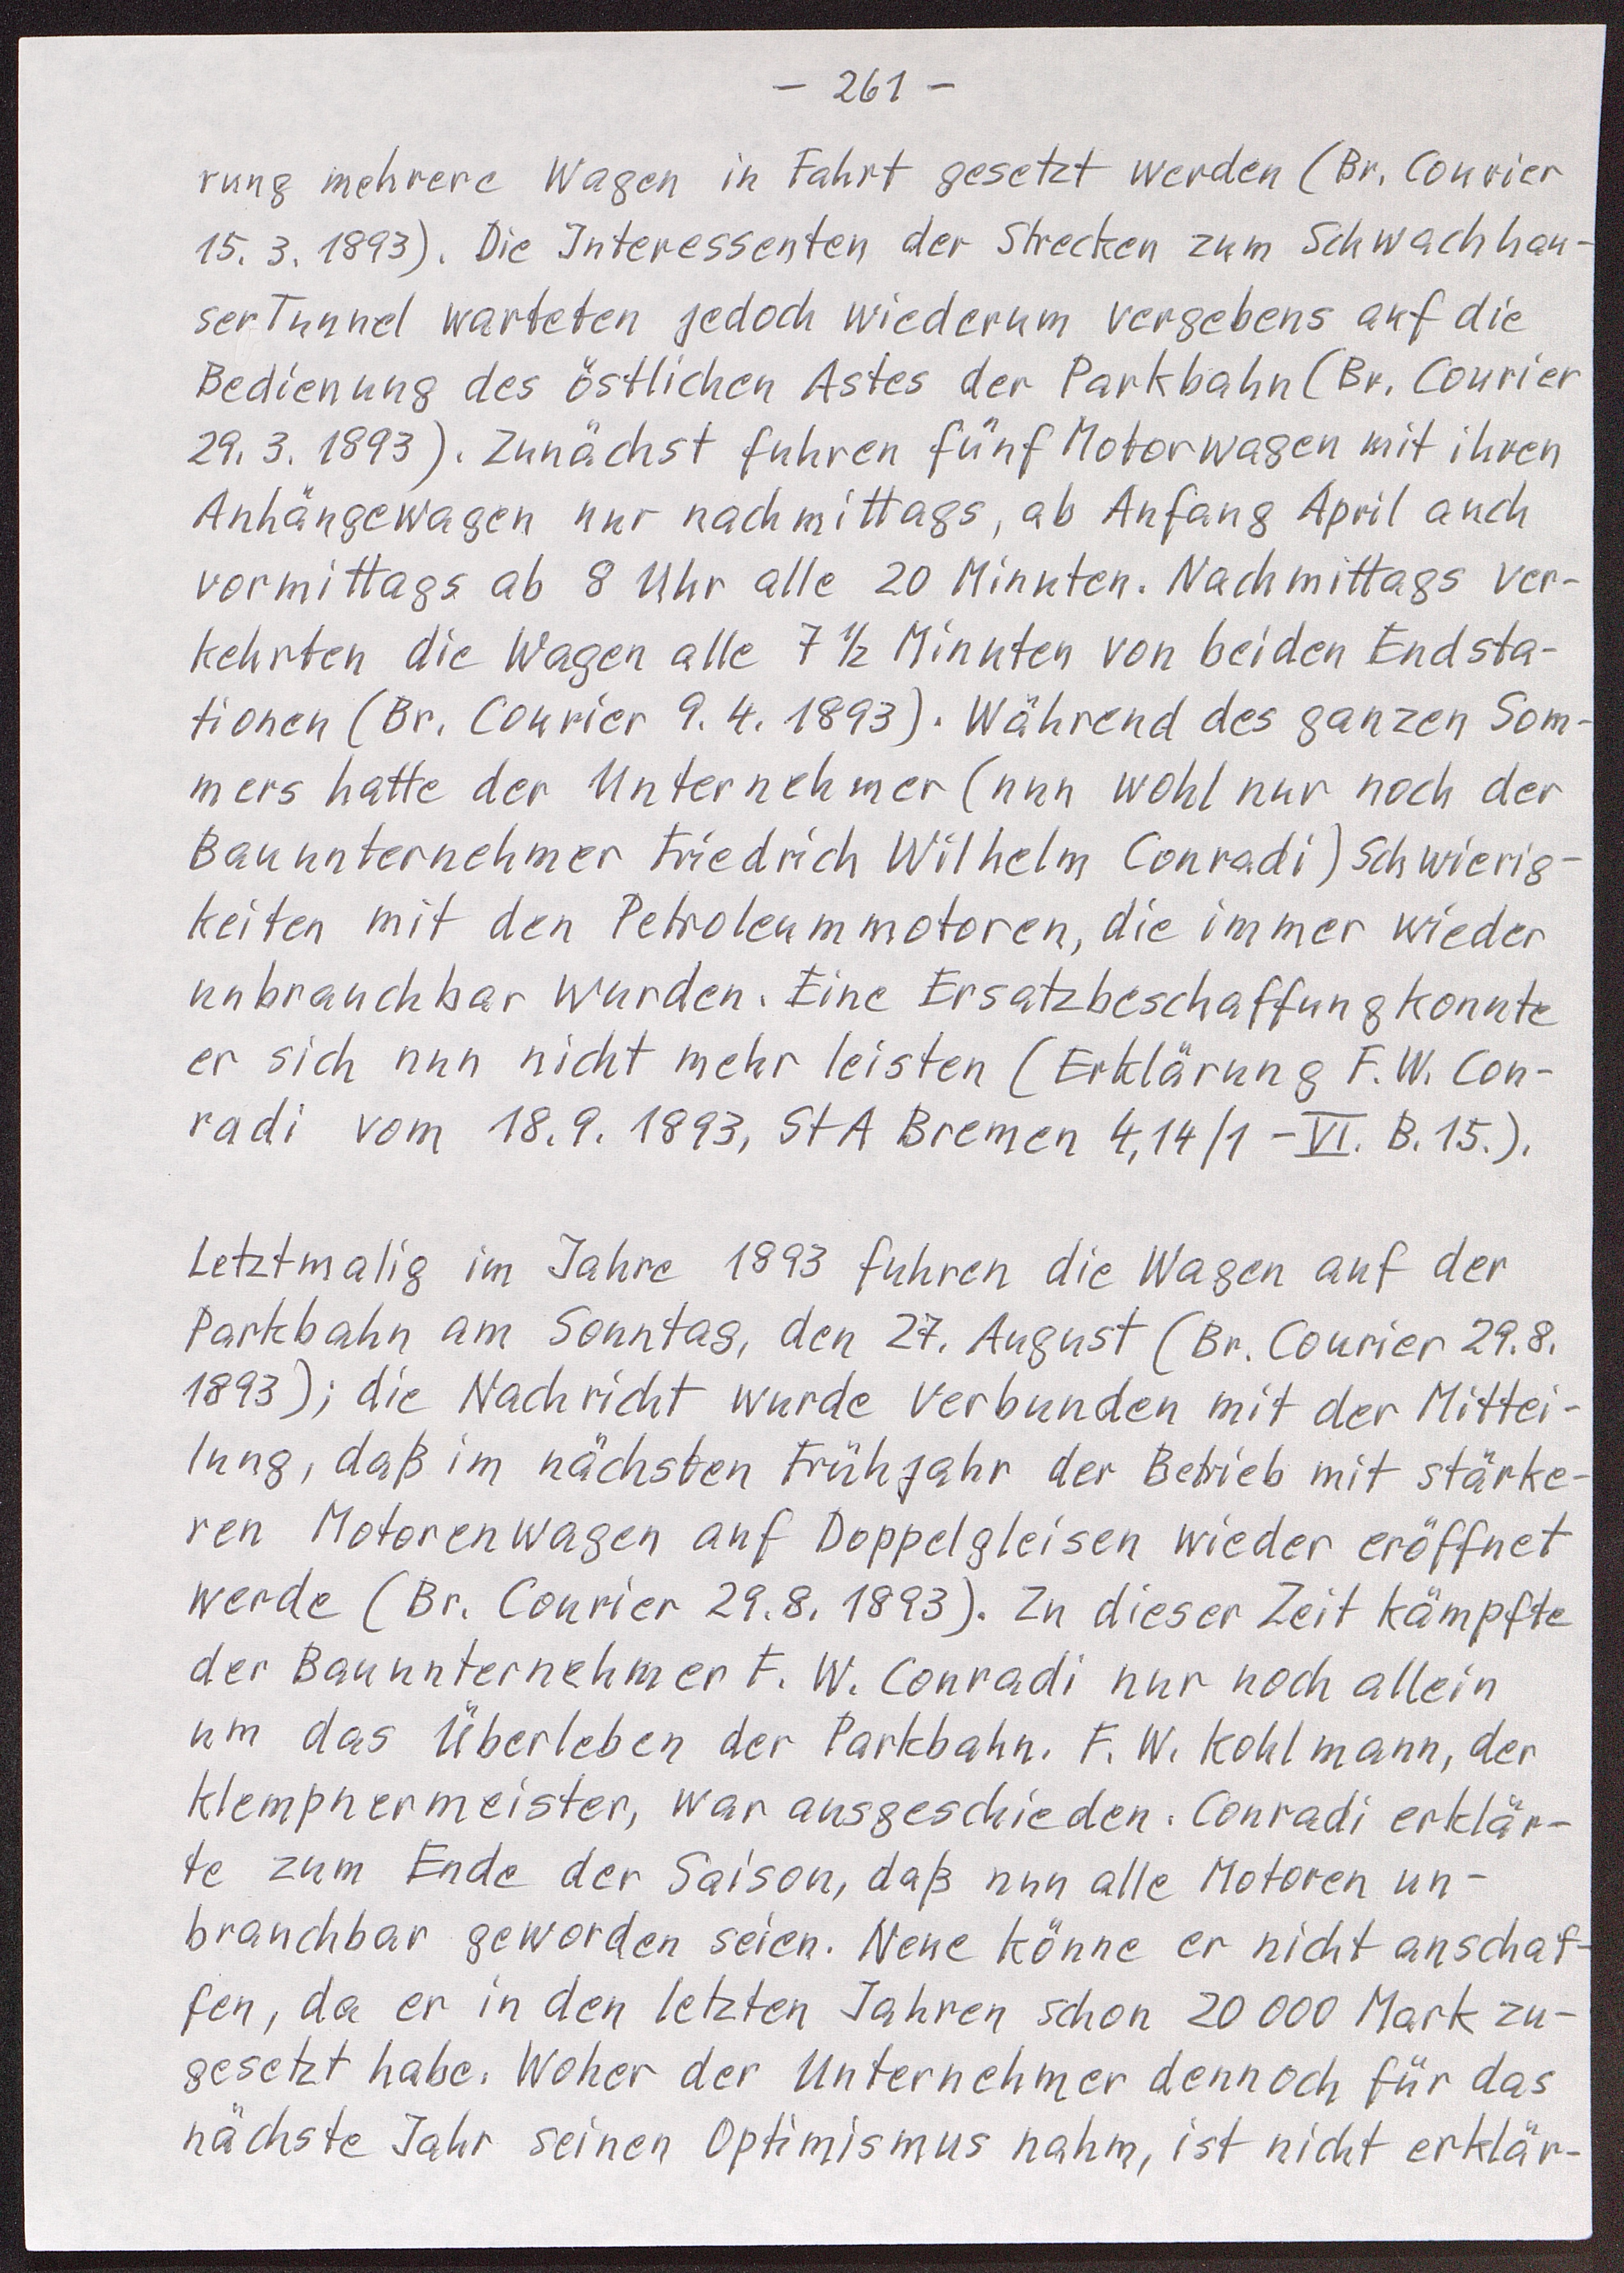 – 261 –
rung mehrere Wagen in Fahrt gesetzt werden (Br. Courier
15. 3. 1893). Die Interessenten der Strecken zum Schwachhau-
ser Tunnel warteten jedoch wiederum vergebens auf die
Bedienung des östlichen Astes der Parkbahn (Br. Courier
29. 3. 1893). Zunächst fuhren fünf Motorwagen mit ihren
Anhängewagen nur nachmittags, ab Anfang April auch
vormittags ab 8 Uhr alle 20 Minuten. Nachmittags ver-
kehrten die Wagen alle 7 1/2 Minuten von beiden Endsta-
tionen (Br. Courier 9. 4. 1893). Während des ganzen Som-
mers hatte der Unternehmer (nun wohl nur noch der
Bauunternehmer Friedrich Wilhelm Conradi) Schwierig-
keiten mit den Petroleummotoren, die immer wieder
unbrauchbar wurden. Eine Ersatzbeschaffung konnte
er sich nun nicht mehr leisten (Erklärung F. W. Con-
radi vom 18. 9. 1893, StA Bremen 4,14/1 – VI. B. 15.).
Letztmalig im Jahre 1893 fuhren die Wagen auf der
Parkbahn am Sonntag, den 27. August (Br. Courier 29. 8.
1893); die Nachricht wurde verbunden mit der Mittei-
lung, daß im nächsten Frühjahr der Betrieb mit stärke-
ren Motorenwagen auf Doppelgleisen wieder eröffnet
werde (Br. Courier 29. 8. 1893). Zu dieser Zeit kämpfte
der Bauunternehmer F. W. Conradi nur noch allein
um das Überleben der Parkbahn. F. W. Kohlmann, der
Klempnermeister, war ausgeschieden. Conradi erklär-
te zum Ende der Saison, daß nun alle Motoren un-
brauchbar geworden seien. Neue könne er nicht anschaf-
fen, da er in den letzten Jahren schon 20 000 Mark zu-
gesetzt habe. Woher der Unternehmer dennoch für das
nächste Jahr seinen Optimismus nahm, ist nicht erklär-